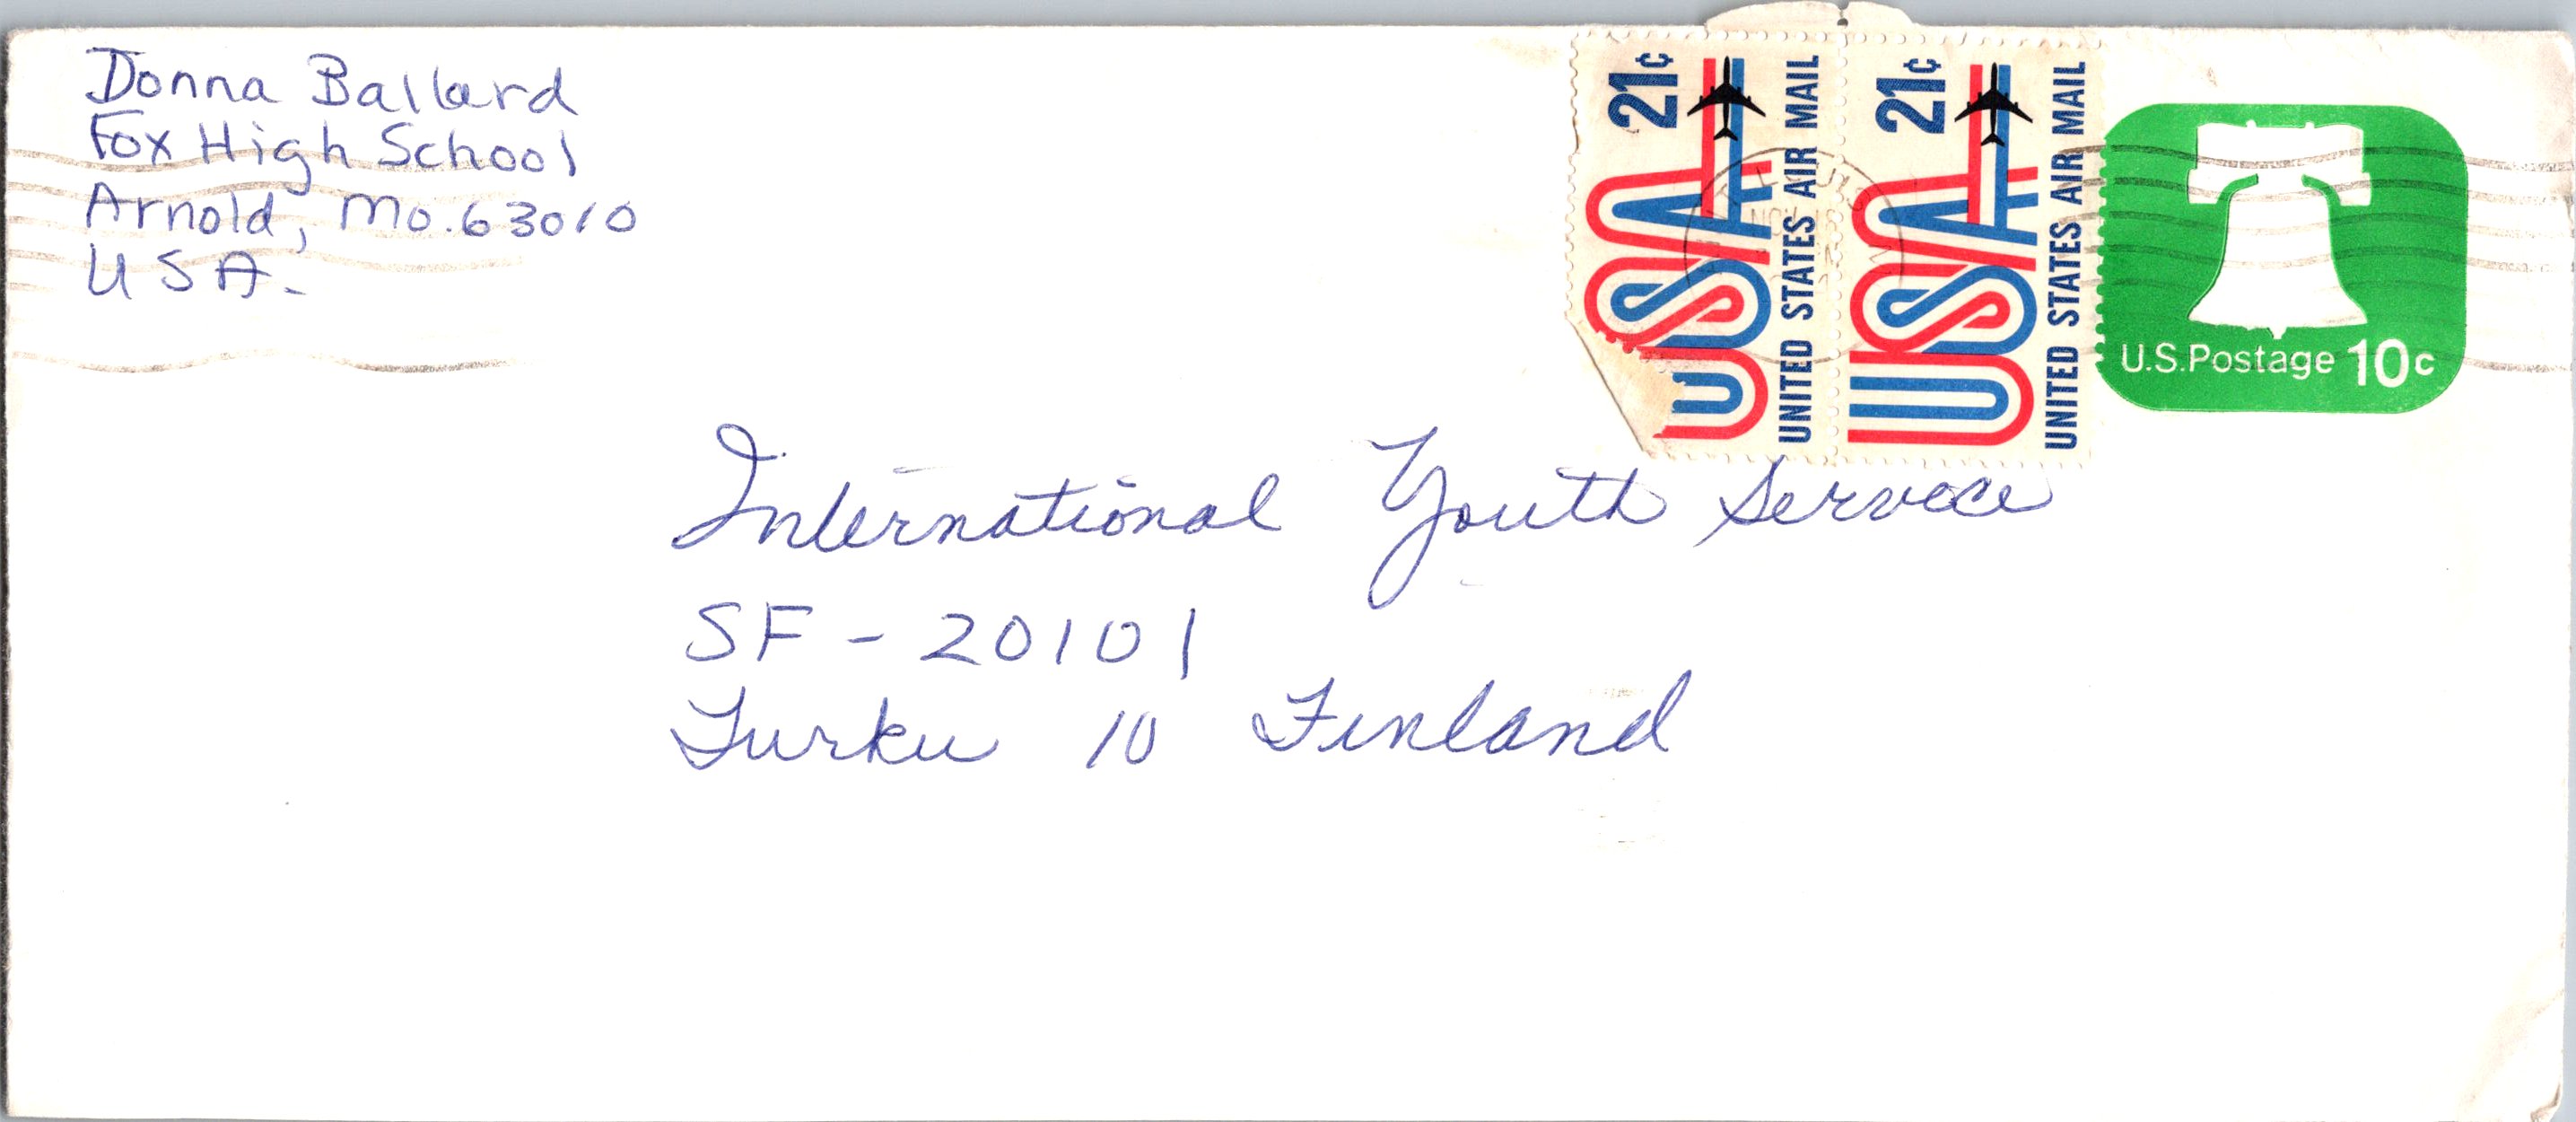 Donna Ballard
Fox High School
Arnold, Mo. 63010
USA.
21¢
USA
UNITED STATES AIR MAIL
21¢
USA
UNITED STATES AIR MAIL
U.S. Postage 10c
LOUIS
NOV
International Youth Service
SF - 20101
Turku 10 Finland